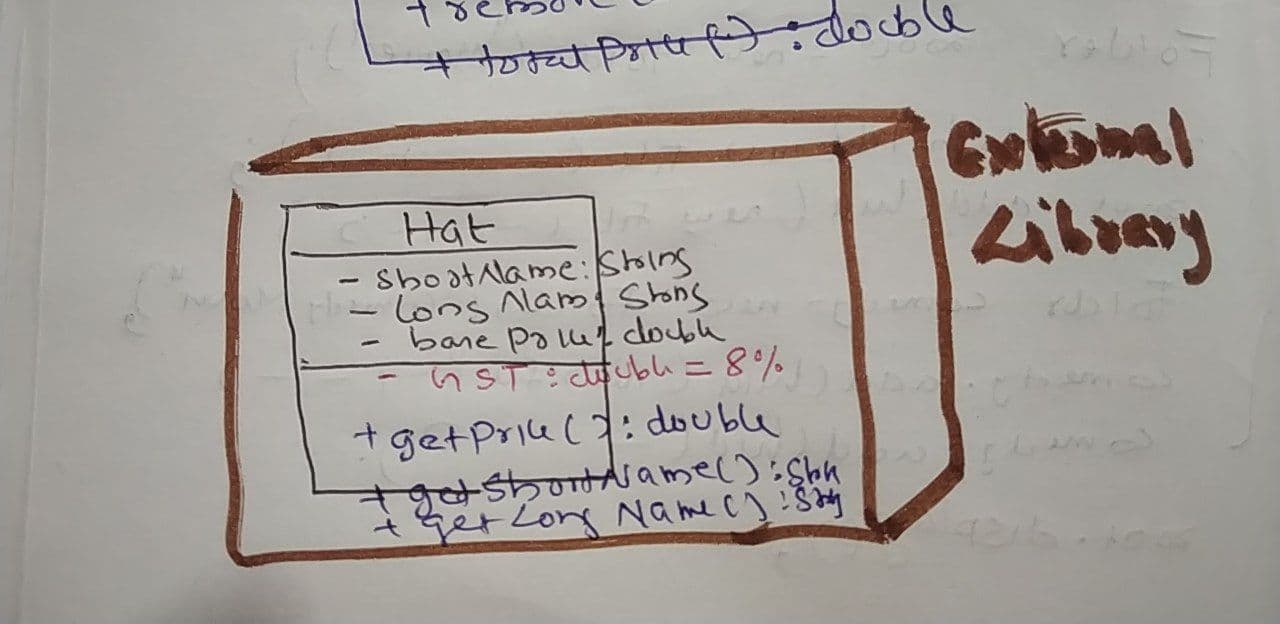 + totalPrice() : double
External
Library
Hat
- shortName: String
- Long Name: String
- base Price: double
- GST : double = 8%
+ getPrice() : double
+ get ShortName() : Str
+ get Long Name() : Str